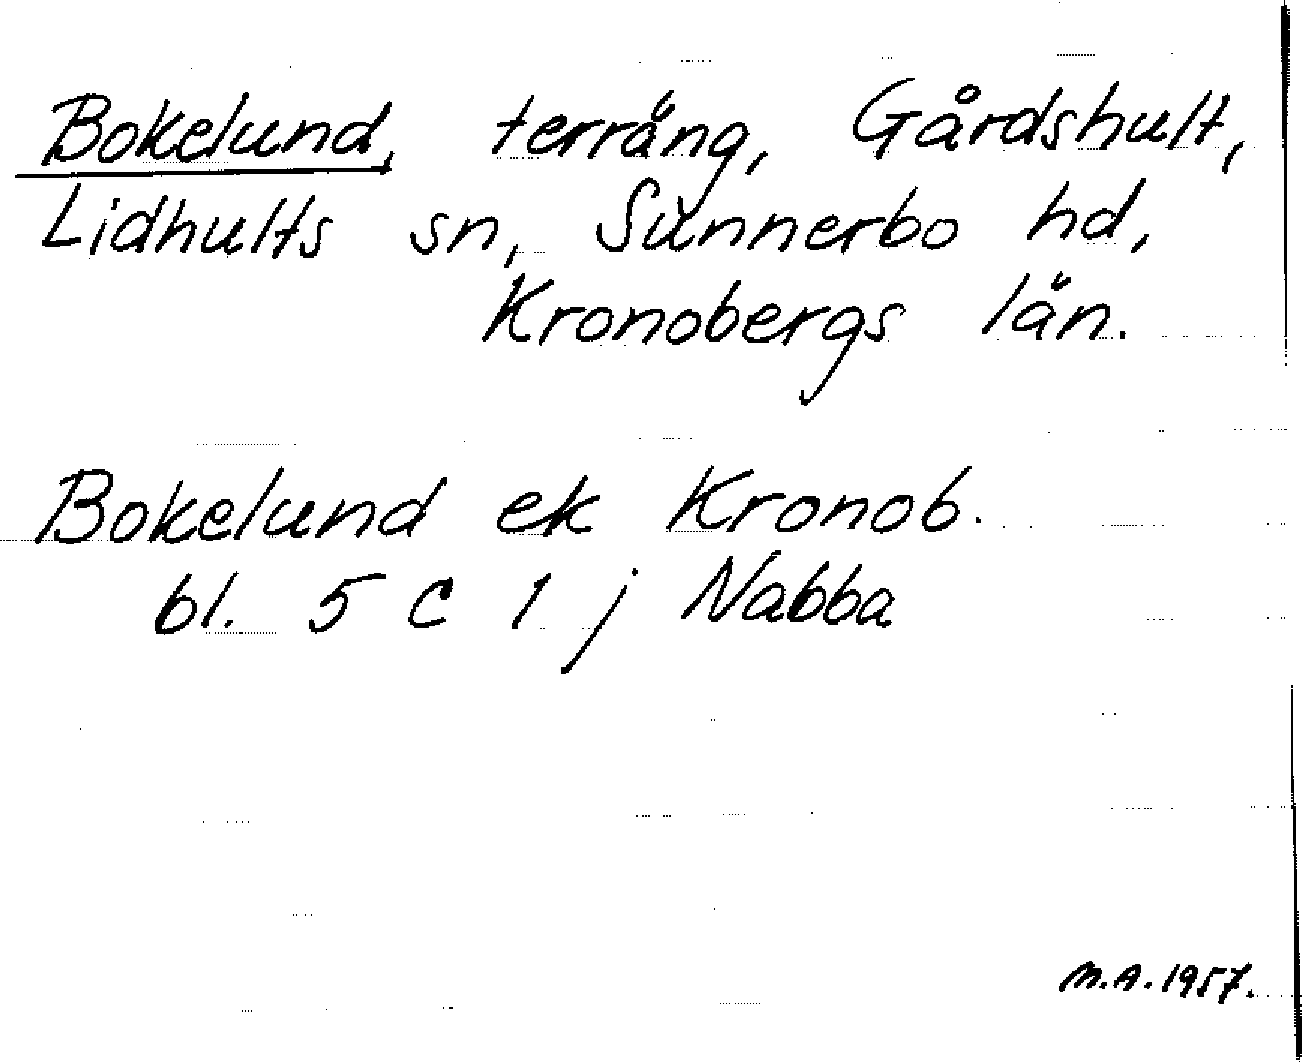 Bokelund, terräng, Gårdshult,
Lidhults sn, Sunnerbo hd,
Kronobergs län.
Bokelund ek Kronob.
bl. 5 C 1 j Nabba
M.A. 1957.